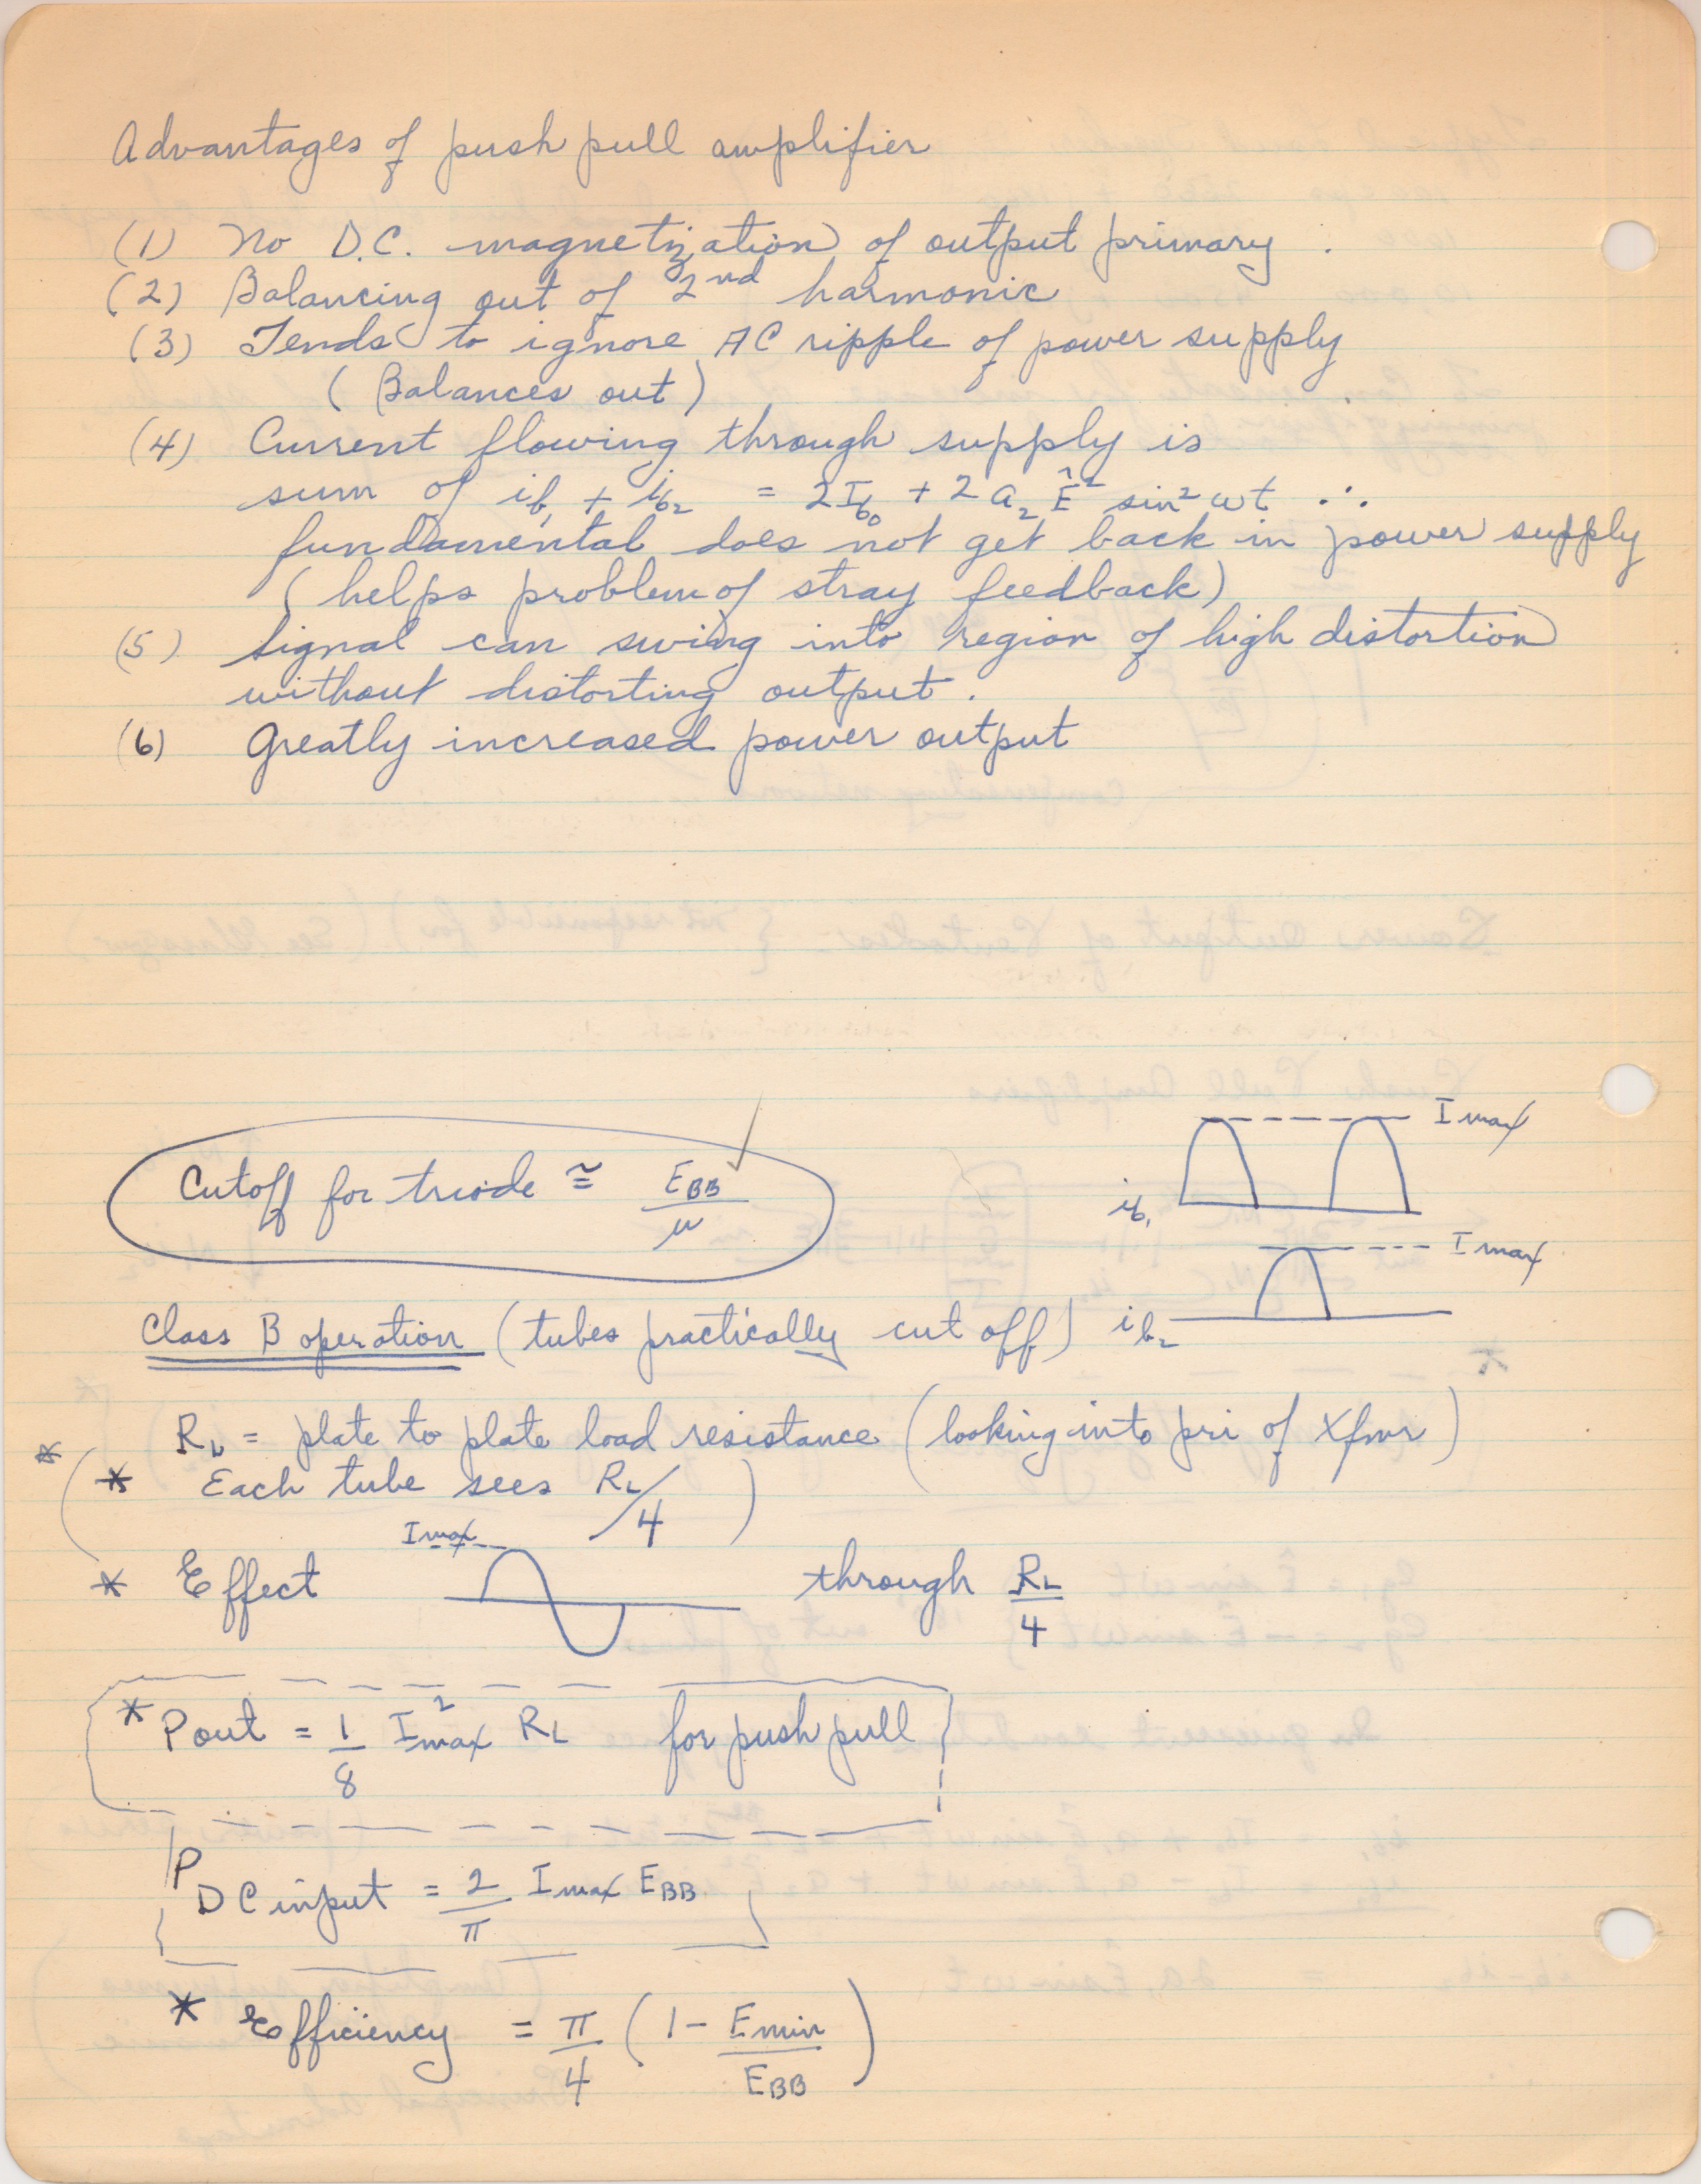 Advantages of push pull amplifier
(1) No D.C. magnetization of output primary .
(2) Balancing out of 2nd harmonic
(3) Tends to ignore AC ripple of power supply
( Balances out )
(4) Current flowing through supply is
sum of ib1 + ib2 = 2Ib0 + 2 a2 Ê² sin² ωt ∴
fundamental does not get back in power supply
( helps problem of stray feedback )
(5) Signal can swing into region of high distortion
without distorting output .
(6) Greatly increased power output
I max
Cutoff for triode ≅ EBB / μ ✓
ib1
I max
Class B operation (tubes practically cut off) ib2
RL = plate to plate load resistance (looking into pri of Xfmr)
* ( * Each tube sees RL/4 )
I max
* Effect through RL/4
* Pout = 1/8 I²max RL for push pull
P DC input = 2/π I max EBB
* Efficiency = π/4 ( 1 - Emin/EBB )